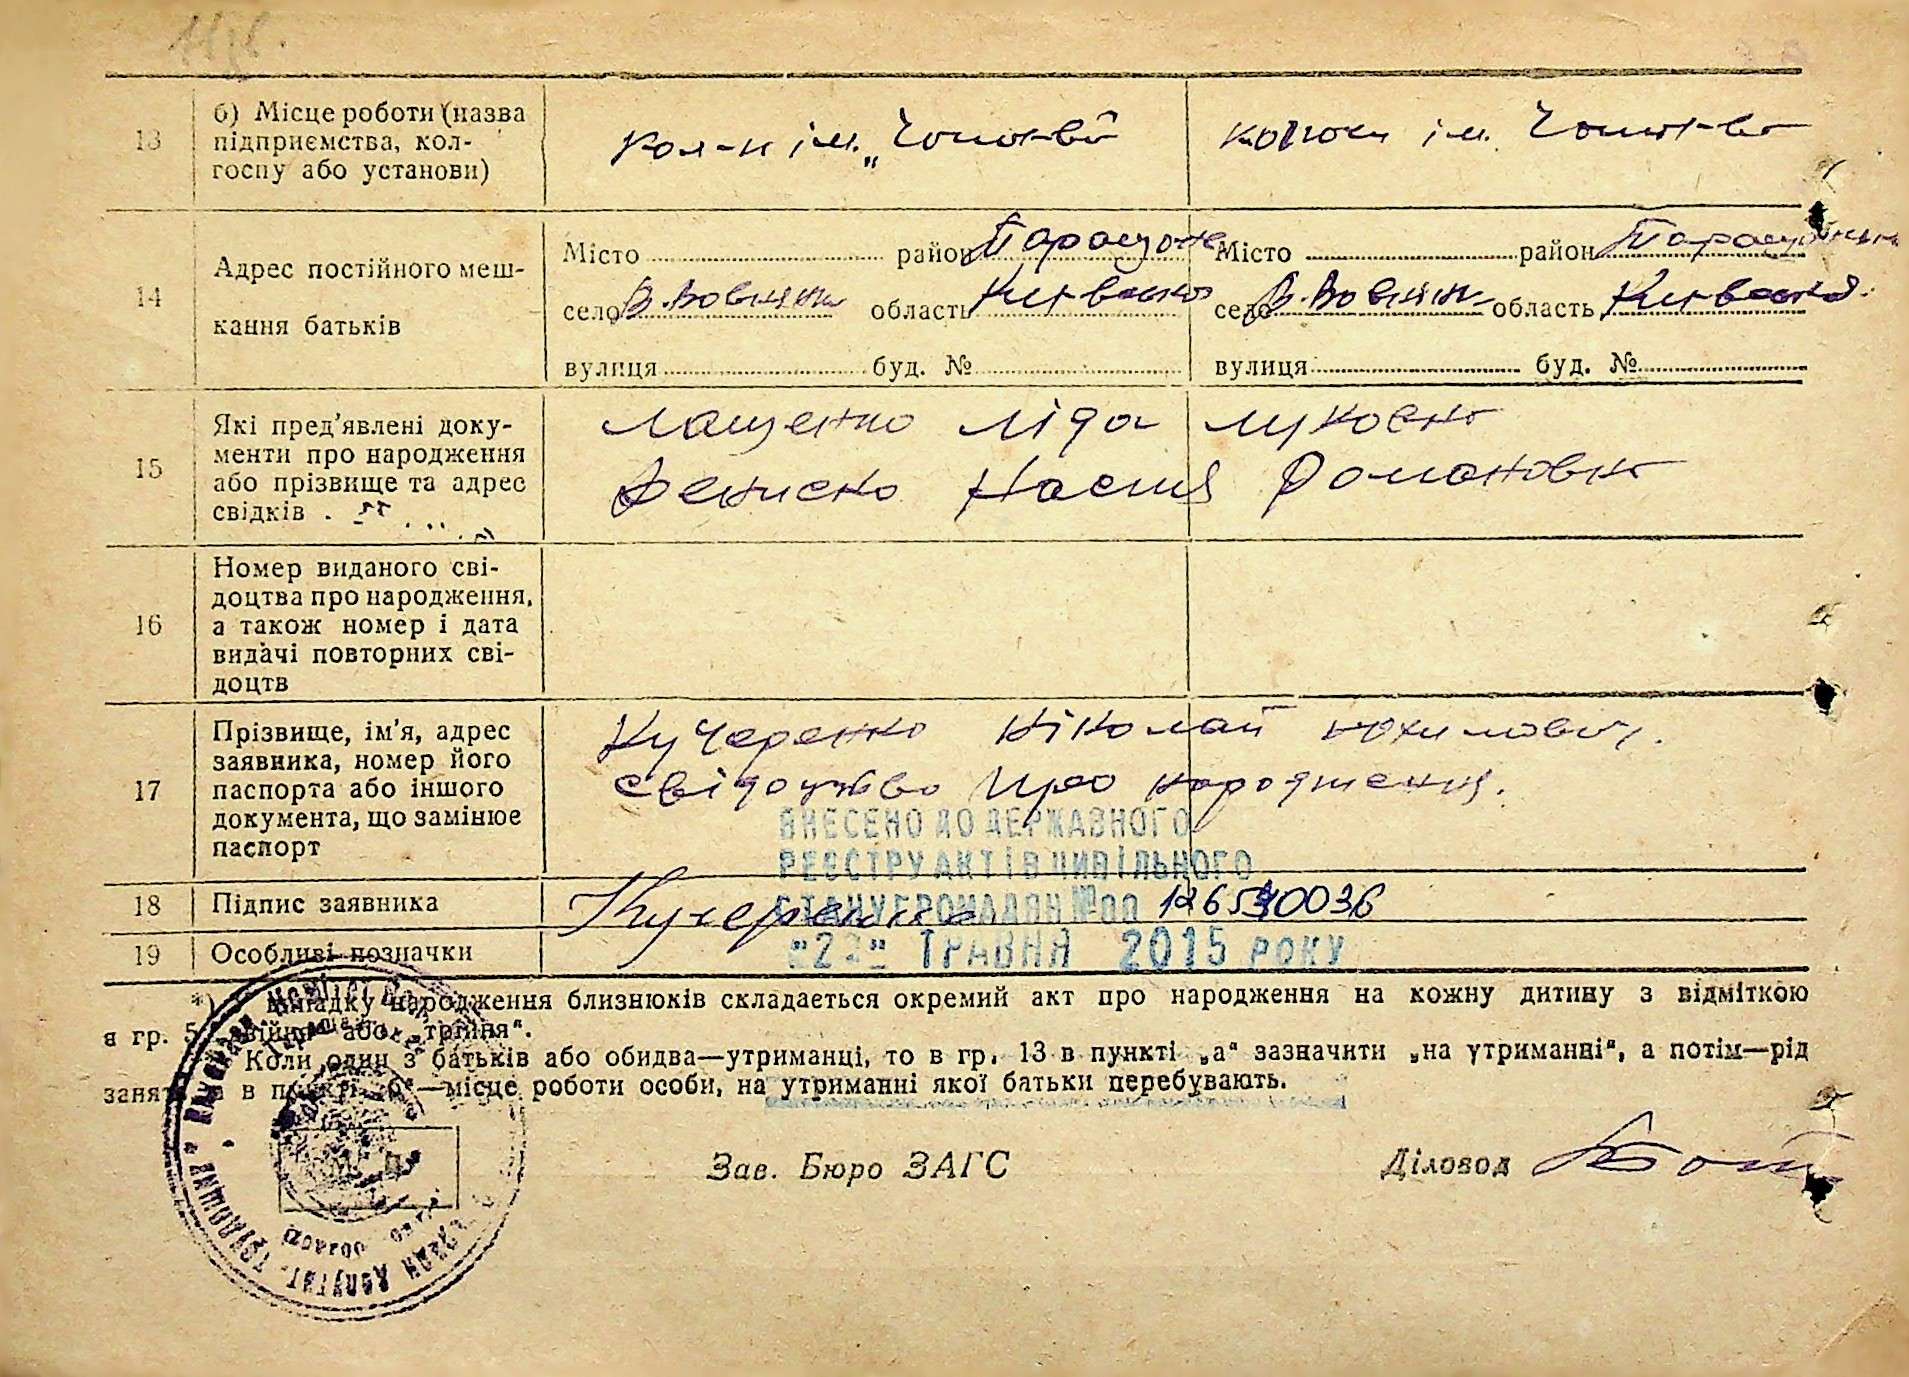 13 б) Місце роботи (назва підприємства, колгоспу або установи)
кол-п ім. „Чапаєва
колгосп ім. Чапаєва
14 Адрес постійного мешкання батьків
Місто район Таращанс
село В. Вовнянка область Київська
вулиця буд. №
Місто район Таращанськ
село В. Вовнянк область Київська
вулиця буд. №
15 Які пред'явлені документи про народження або прізвище та адрес свідків
Лащенко Ліда Лукаєвна
Денисенко Настя Романовна
16 Номер виданого свідоцтва про народження, а також номер і дата видачі повторних свідоцтв
17 Прізвище, ім'я, адрес заявника, номер його паспорта або іншого документа, що замінює паспорт
Кучеренко Ніколай Юхимович.
свідоцтво про народження.
ВНЕСЕНО ДО ДЕРЖАВНОГО
РЕЄСТРУ АКТІВ ЦИВІЛЬНОГО
СТАНУ ГРОМАДЯН №00 126540036
"22" ТРАВНЯ 2015 РОКУ
18 Підпис заявника Кучеренко
19 Особливі позначки
*) випадку народження близнюків складається окремий акт про народження на кожну дитину з відміткою
в гр. 5 двійня" або „трійня".
Коли один з батьків або обидва—утриманці, то в гр. 13 в пункті „а" зазначити „на утриманні", а потім—рід
занять а в пункті „б"—місце роботи особи, на утриманні якої батьки перебувають.
Зав. Бюро ЗАГС
Діловод